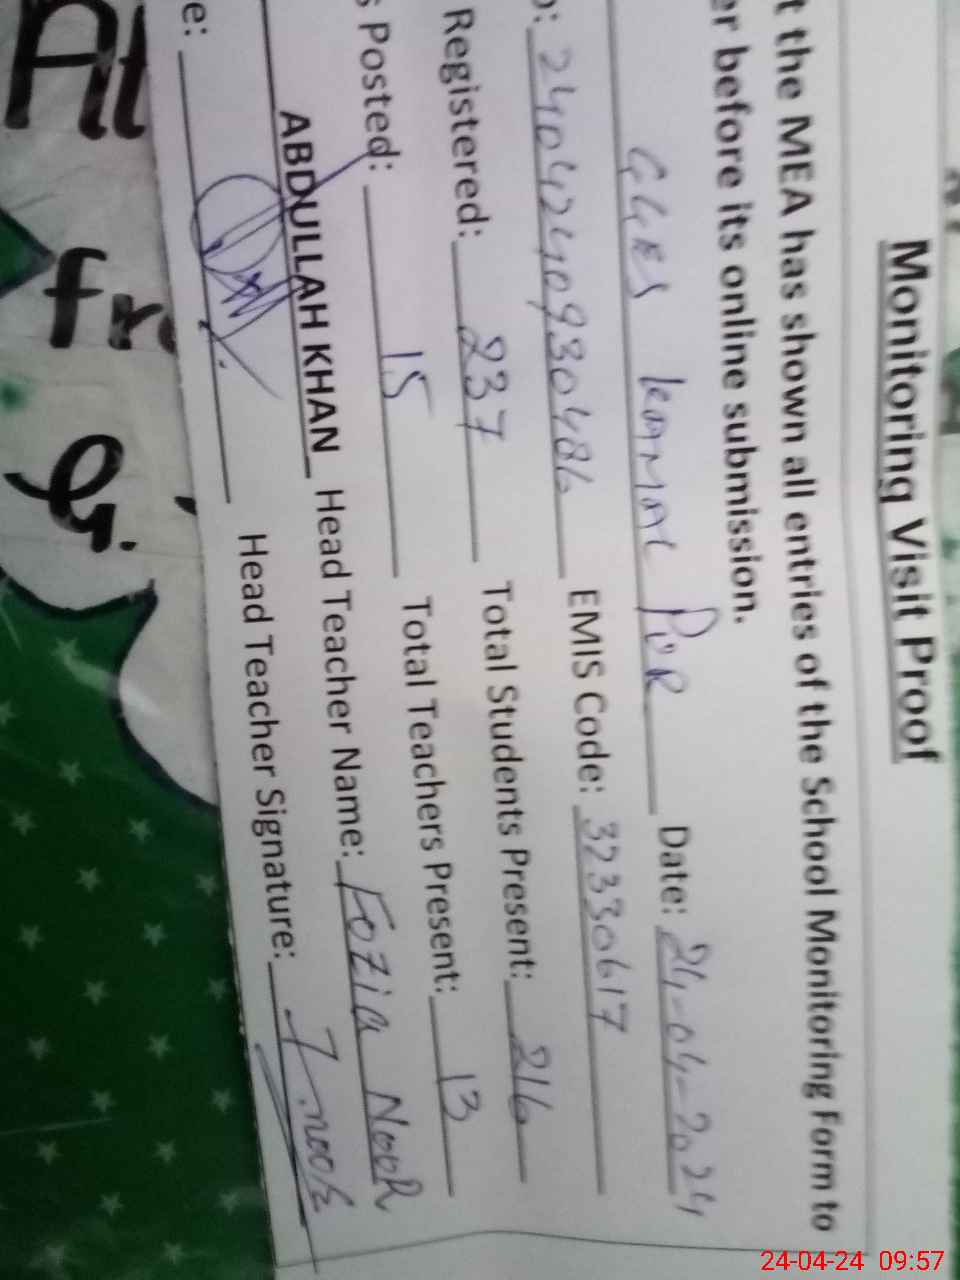 Monitoring Visit Proof
t the MEA has shown all entries of the School Monitoring Form to
er before its online submission.
GGES kamal PUR Date: 24-04-2024
o: 24042409930486 EMIS Code: 32330617
Registered: 237 Total Students Present: 216
s Posted: 15 Total Teachers Present: 13
ABDULLAH KHAN Head Teacher Name: Fozia NooR
e: Head Teacher Signature: F.noor
At
fr
24-04-24 09:57